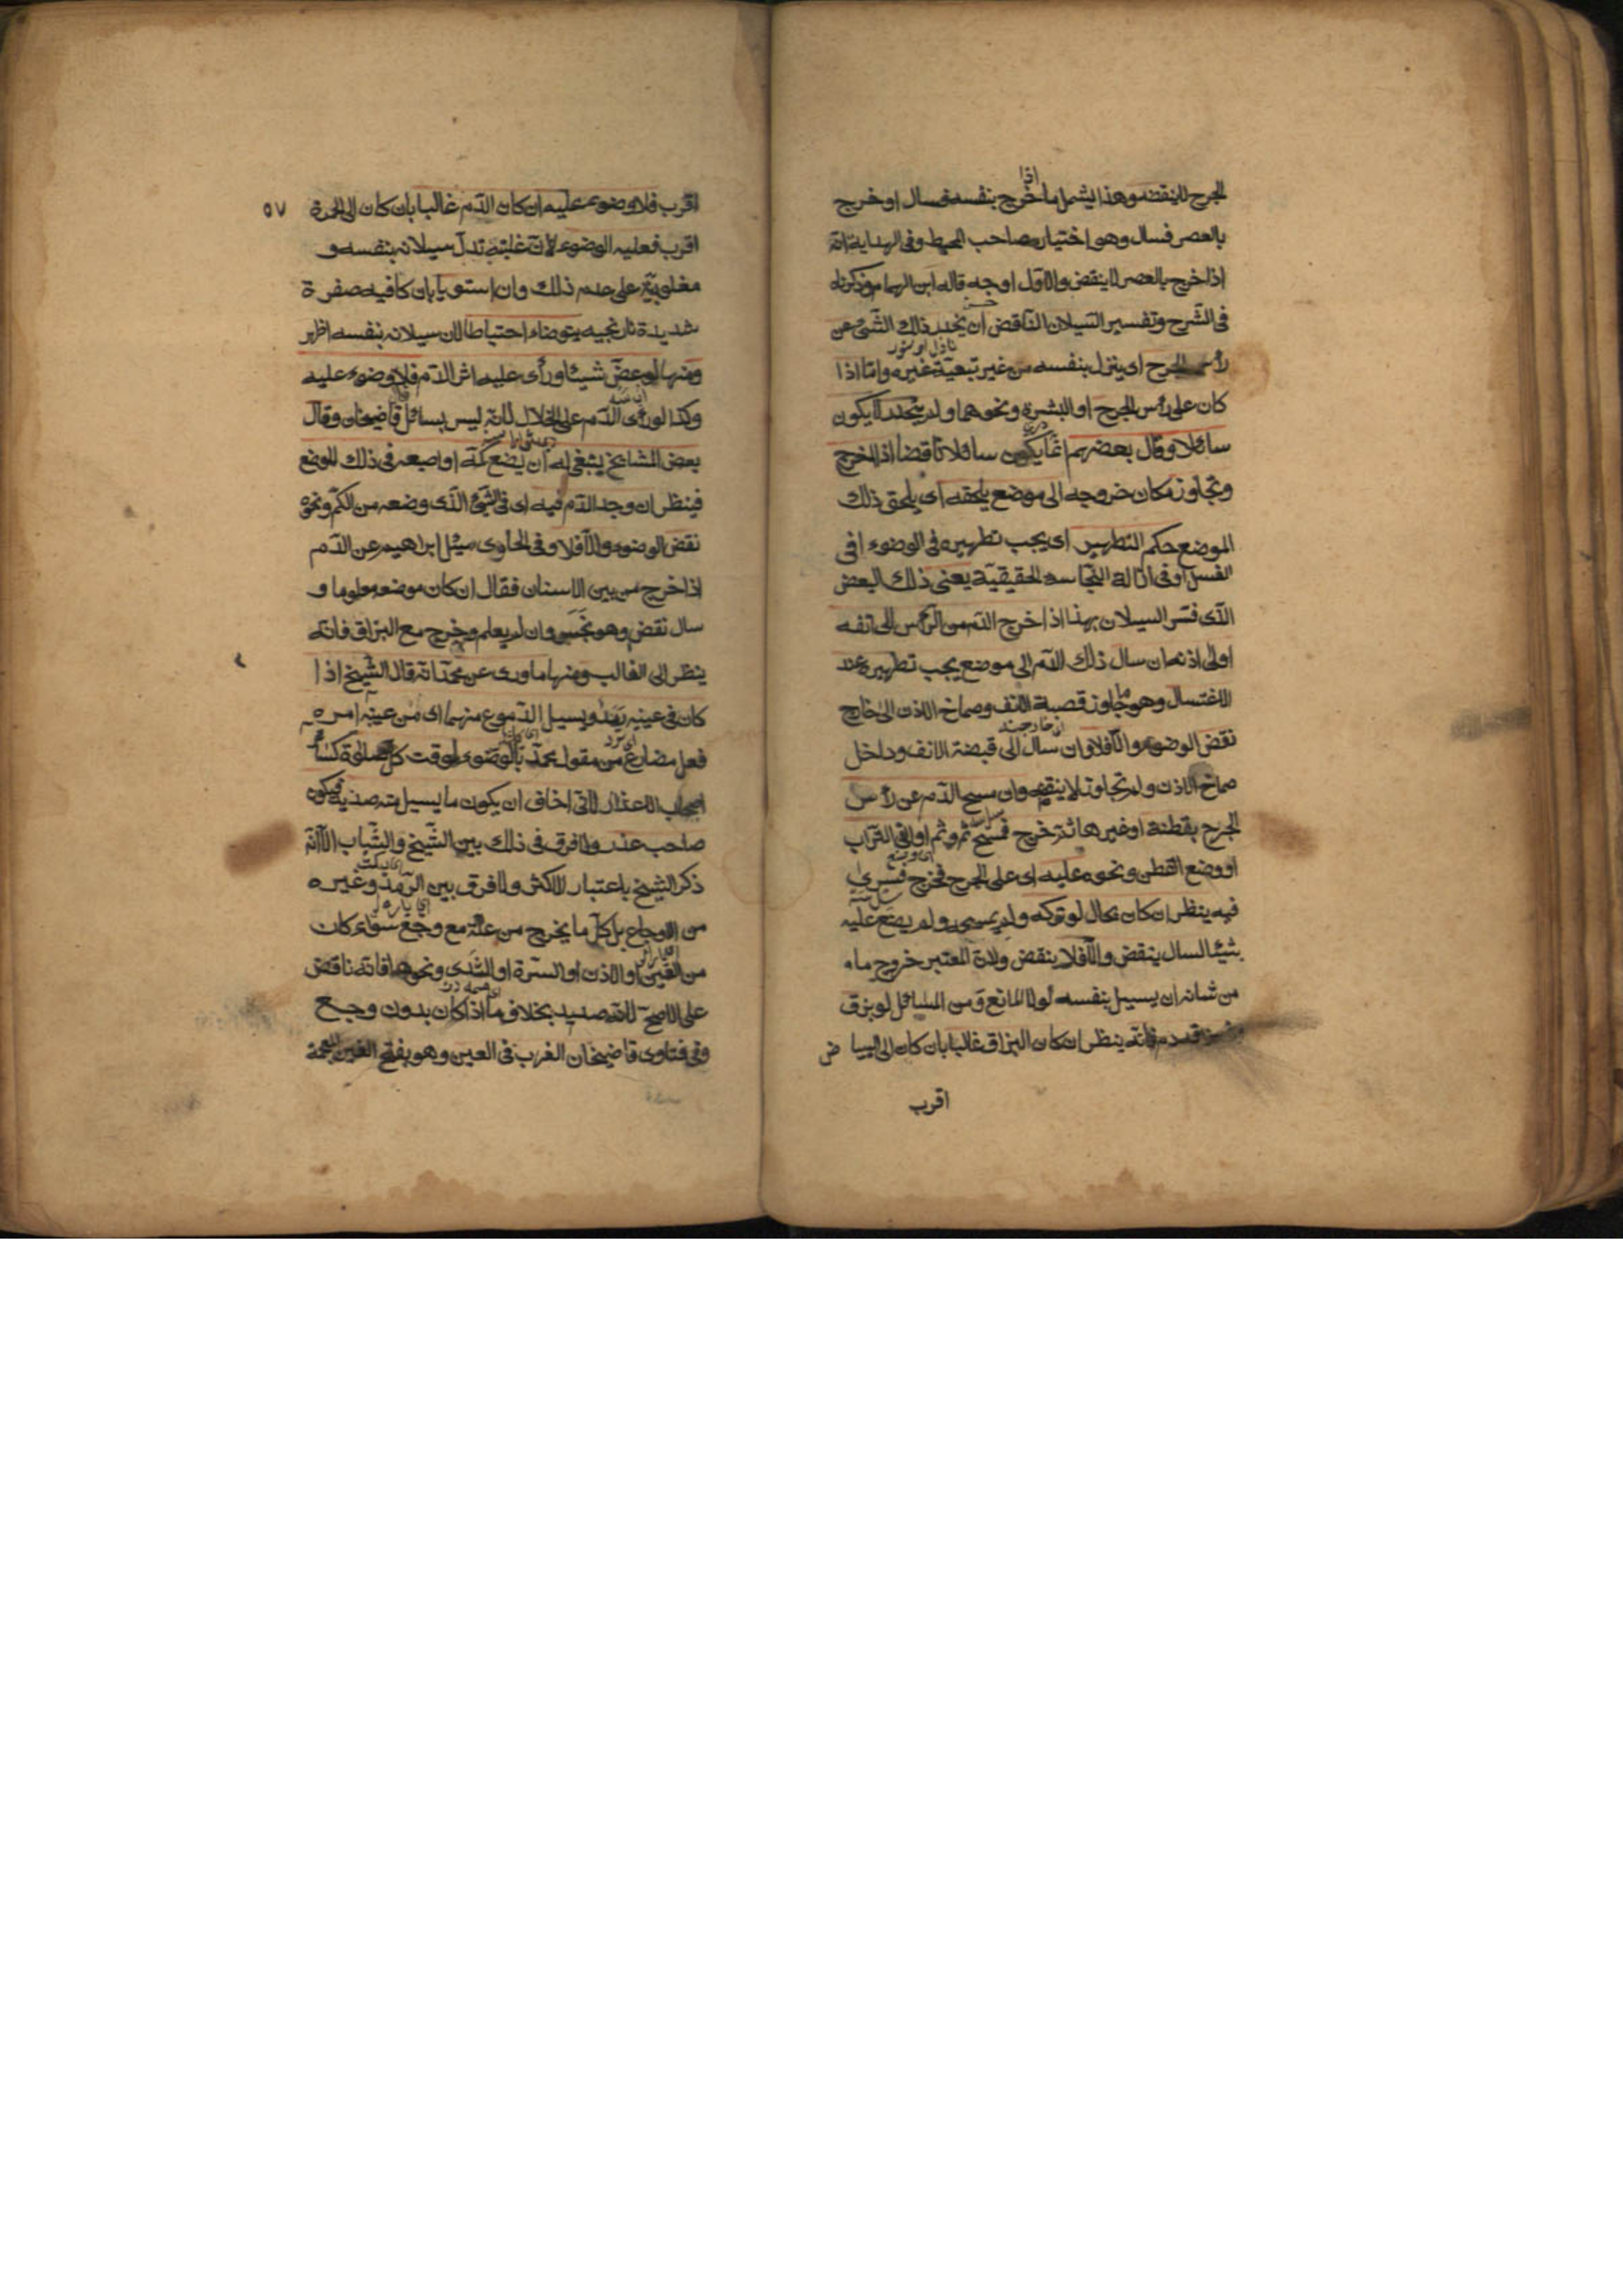 الجرح لاينقضه وهذا يشمل ما اذا خرج بنفسه فسال او خرج
بالعصر فسال وهو اختيار صاحب المحيط وفى الهداية انه
اذا خرج بالعصر لاينقض والاول اوجه قاله ابن الهمام وذكرناه
فى الشرح وتفسير السيلان الناقض ان ينحدر ذلك الشئ عن
رأس الجرح اى ينزل بنفسه من غير تبعية غيره واما اذا
كان على رأس الجرح او البشرة ونحوهما ولم ينحدر لايكون
سائلا وقال بعضهم انما يكون سائلا ناقضا اذا خرج
وتجاوز مكان خروجه الى موضع يلحقه اى يلحق ذلك
الموضع حكم التطهير اى يجب تطهيره فى الوضوء افى
الغسل اوفى ازالة النجاسة الحقيقية يعنى ذلك البعض
الذى فسر السيلان بهذا اذا خرج الدم من الرأس الى انفه
اوالى اذنه ان سال ذلك الدم الى موضع يجب تطهيره عند
الاغتسال وهو ما جاوز قصبة الانف وصماخ الاذن الى خارج
نقض الوضوء والا فلا وان سال الى قبضة الانف وداخل
صماخ الاذن ولم تجاوز لا ينقض وان مسح الدم عن رأس
الجرح بقطنة اوغيرها ثم خرج فمسح ثم وثم او القى التراب
او وضع القطن ونحوه عليه اى على الجرح فخرج فسرى
فيه ينظر ان كان بحال لو تركه ولم يمسحه ولم يضع عليه
شيئا لسال ينقض والا فلا ينقض ولان المعتبر خروج ما
من شانه ان يسيل بنفسه لولا المانع ومن المسائل لو بزق
دم فانه ينظر ان كان البزاق غالبا بان كان الى البياض
اقرب
٥٧
اقرب فلا وضوء عليه ان كان الدم غالبا بان كان الى الحمرة
اقرب فعليه الوضوء لان غلبته تدل سيلانه بنفسه و
مغلوبية على عدم ذلك وان استويا بان كا فيه صفرة
شديدة نارنجيه يتوضاء احتياطا لان سيلانه بنفسه اظهر
ومنها لو عض شيئا ورأى عليه اثر الدم فلا وضوء عليه
وكذا لو رأى الدم على الخلال لانه ليس بسائل قاضيخان وقال
بعض المشايخ ينبغى له ان يضع كمه او اصبعه فى ذلك الموضع
فينظر ان وجد الدم فيه اى فى الشئ الذى وضعه من الكم ونحوه
نقض الوضوء والا فلا وفى الحاوى سئل ابراهيم عن الدم
اذا خرج من بين الاسنان فقال ان كان موضعه معلوما و
سال نقض وهو نجس وان لم يعلم وخرج مع البزاق فانه
ينظر الى الغالب ومنها ما روى عن محمد انه قال الشيخ اذا
كان فى عينيه رمد ويسيل الدموع منهما اى من عينيه امره
فعل مضارع من مقول محمد بالوضوء لوقت كل صلوة كسائر
اصحاب الاعذار لانى اخاف ان يكون ما يسيل منه صديد فيكون
صاحب عذر ولا فرق فى ذلك بين الشيخ والشباب الا انه
ذكر الشيخ باعتبار الاكثر ولا فرق بين الرمد وغيره
من الاوجاع بل كل ما يخرج من علة مع وجع سواء كان
من العين او الاذن او السرة او الثدى ونحوها فانه ناقض
على الاصح لانه صديد بخلاف ما اذا كان بدون وجع
وفى فتاوى قاضيخان الغرب فى العين وهو بفتح الغين المعجمة